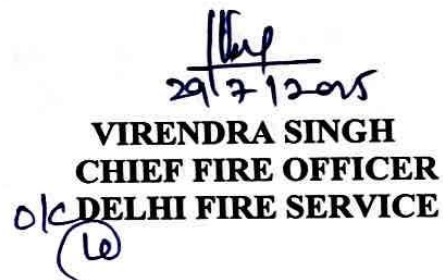 29/7/2025
VIRENDRA SINGH
CHIEF FIRE OFFICER
O/C DELHI FIRE SERVICE